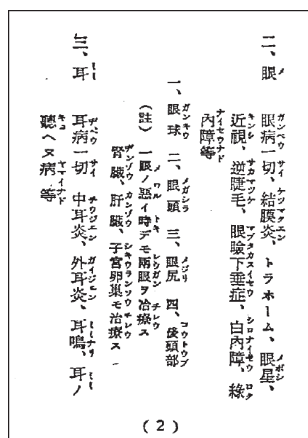 二、眼 眼病一切、結膜炎、トラホーム、眼星、
近視、逆睫毛、眼瞼下垂症、白內障、綠
內障等
一、眼球 二、眼頭 三、眼尻 四、後頭部
(註) 一眼ノ惡イ時デモ兩眼ヲ治療ス
腎臓、肝臓、子宮卵巣モ治療ス
三、耳 耳病一切 中耳炎、外耳炎、耳鳴、耳ノ
聽ヘヌ病 等
(2)